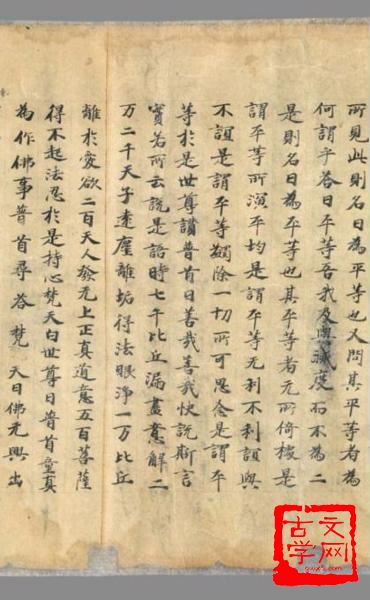 所見此則名曰為平等也又問其平等者為
何謂乎荅曰平等吾我及與滅度而不為二
是則名曰為平等也其平等者无所倚據是
謂平等所演平均是謂平等无利不利誼與
不誼是謂平等蠲除一切所可思念是謂平
等於是世尊讚普首曰善哉善哉快說斯言
實若所云說是語時七千比丘漏盡意解二
万二千天子逺塵離垢得法眼浄一万比丘
離於愛欲二百天人發无上正真道意五百菩薩
得不起法忍於是持心梵天白世尊曰普首童真
為作佛事普首尋荅梵 天曰佛无興出
古文
学网